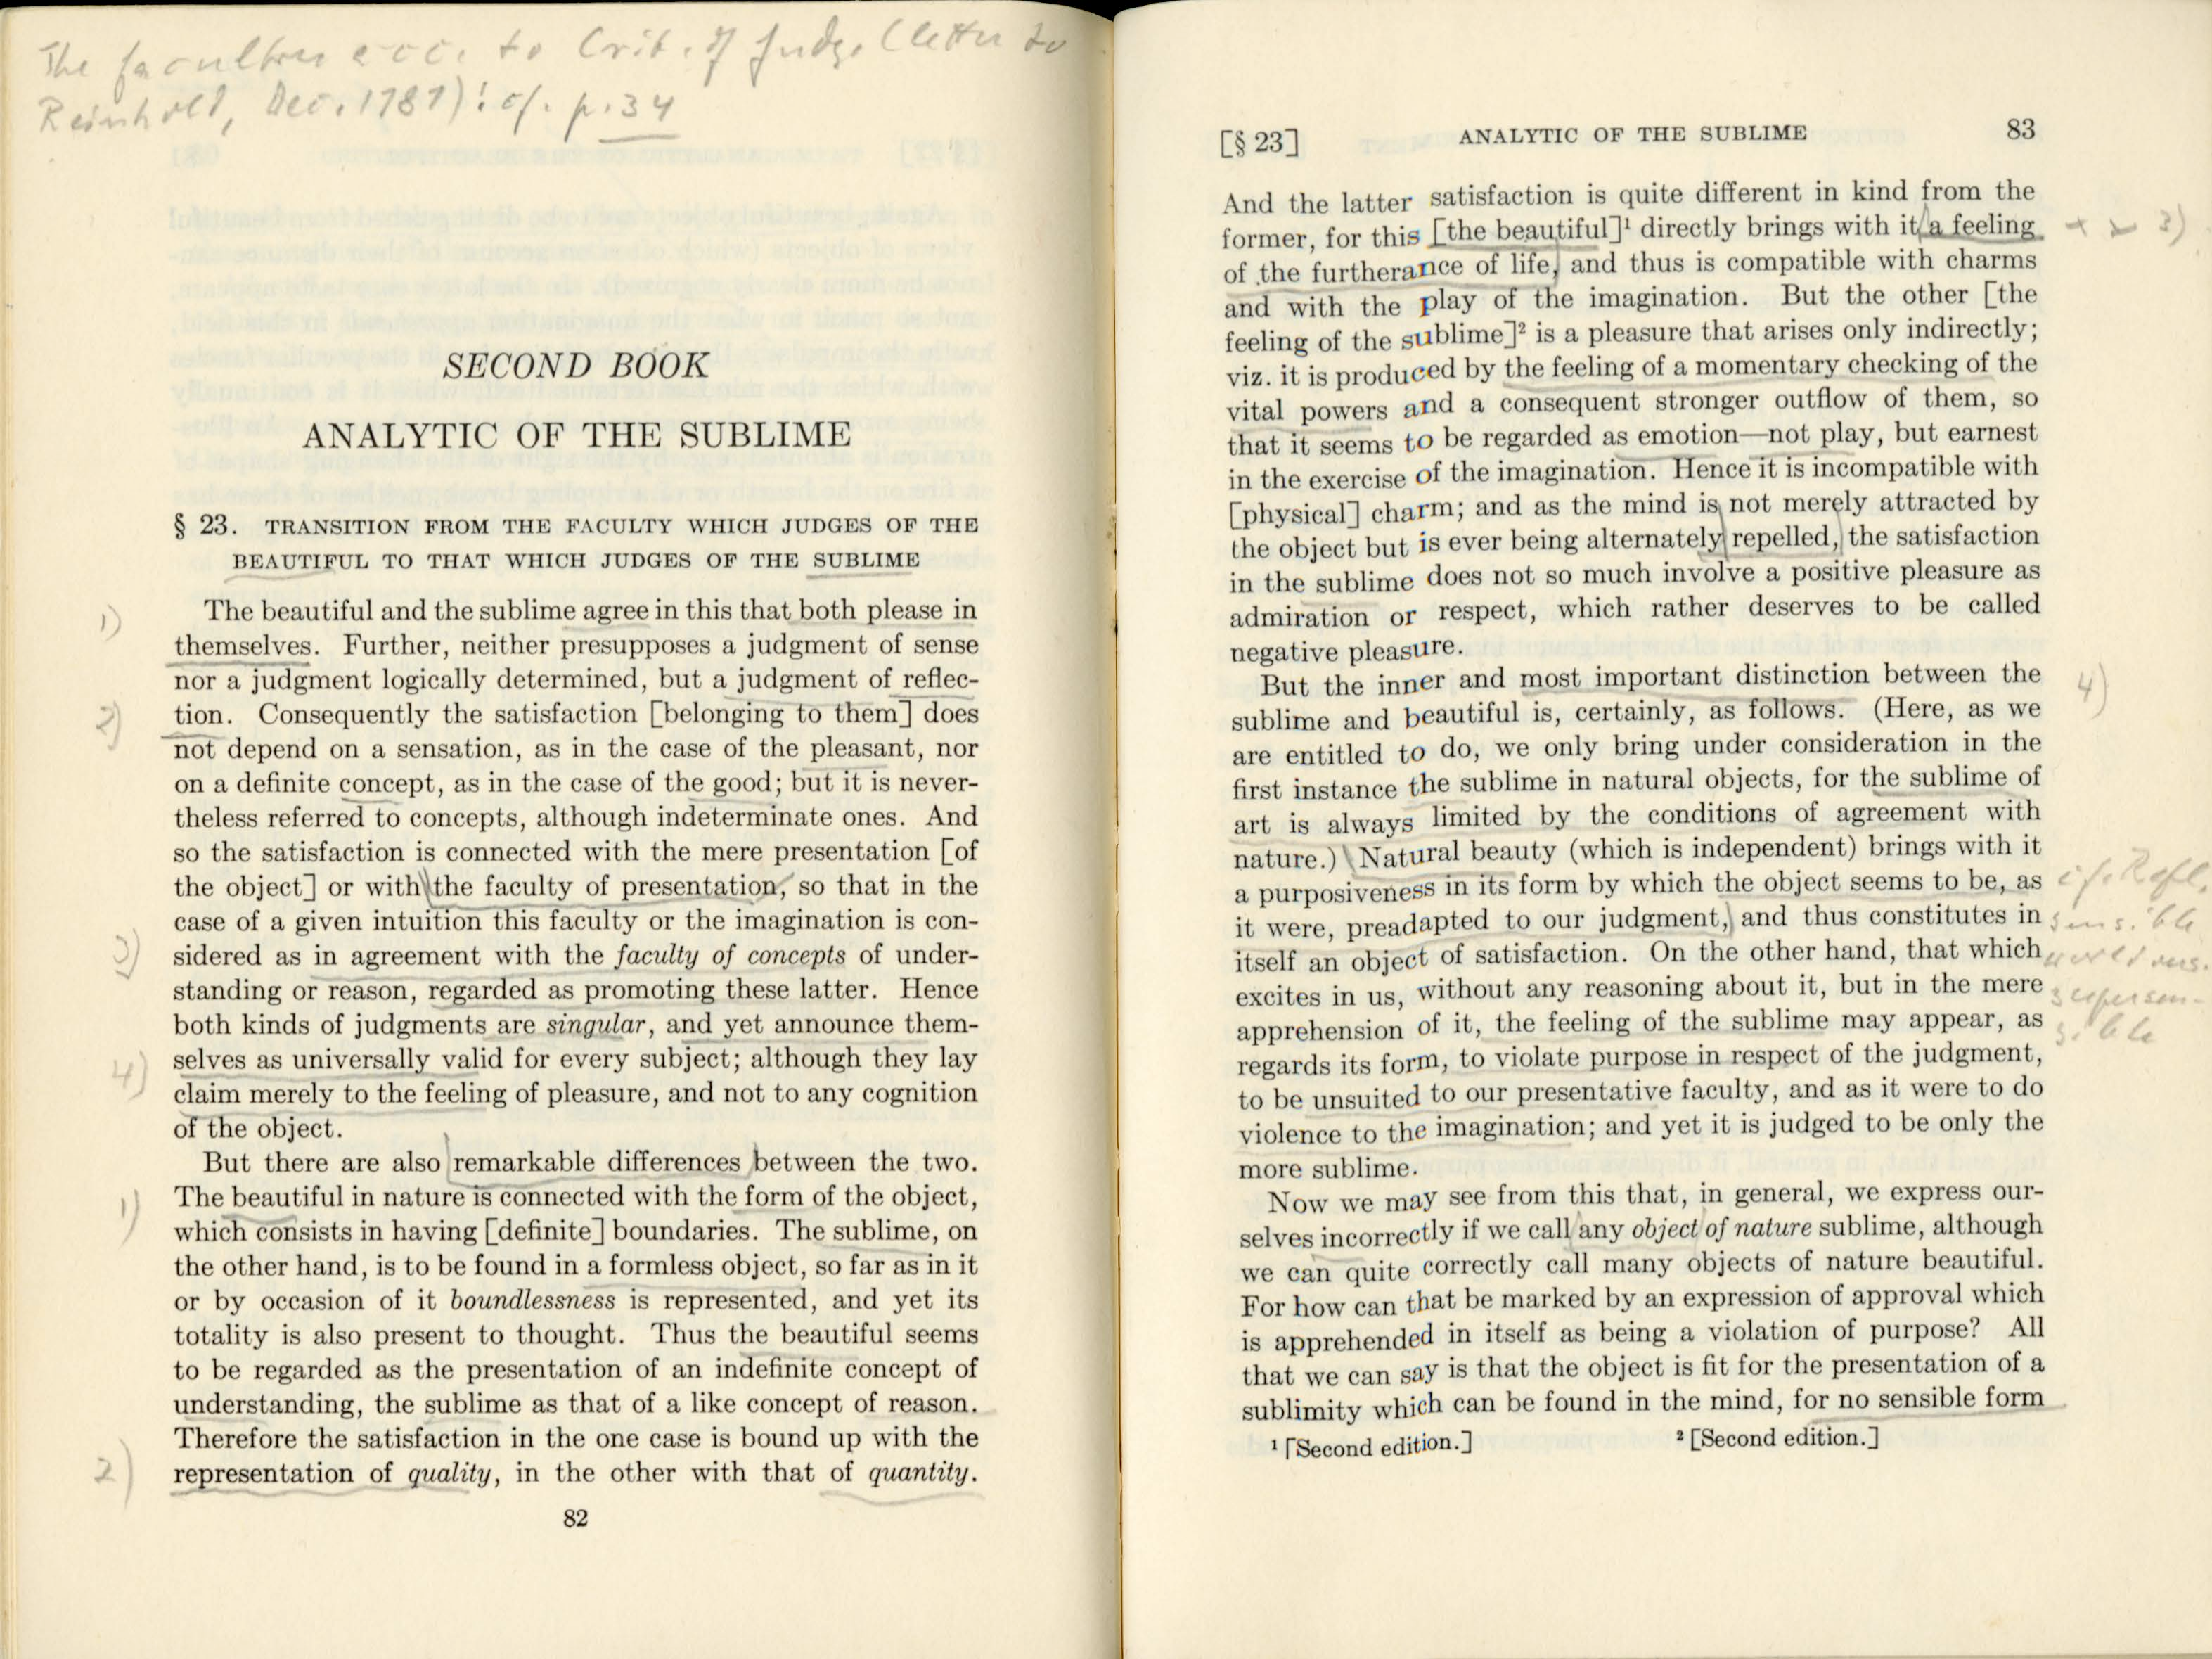 The faculties acc. to Crit. of Judge (letter to
Reinholt, Dec. 1787): cf. p. 34
SECOND BOOK
ANALYTIC OF THE SUBLIME
§ 23. TRANSITION FROM THE FACULTY WHICH JUDGES OF THE
BEAUTIFUL TO THAT WHICH JUDGES OF THE SUBLIME
1)
The beautiful and the sublime agree in this that both please in
themselves. Further, neither presupposes a judgment of sense
nor a judgment logically determined, but a judgment of reflec-
2)
tion. Consequently the satisfaction [belonging to them] does
not depend on a sensation, as in the case of the pleasant, nor
on a definite concept, as in the case of the good; but it is never-
theless referred to concepts, although indeterminate ones. And
so the satisfaction is connected with the mere presentation [of
the object] or with the faculty of presentation, so that in the
case of a given intuition this faculty or the imagination is con-
3)
sidered as in agreement with the faculty of concepts of under-
standing or reason, regarded as promoting these latter. Hence
both kinds of judgments are singular, and yet announce them-
4)
selves as universally valid for every subject; although they lay
claim merely to the feeling of pleasure, and not to any cognition
of the object.
But there are also remarkable differences between the two.
1)
The beautiful in nature is connected with the form of the object,
which consists in having [definite] boundaries. The sublime, on
the other hand, is to be found in a formless object, so far as in it
or by occasion of it boundlessness is represented, and yet its
totality is also present to thought. Thus the beautiful seems
to be regarded as the presentation of an indefinite concept of
understanding, the sublime as that of a like concept of reason.
Therefore the satisfaction in the one case is bound up with the
2)
representation of quality, in the other with that of quantity.
82
[§ 23] ANALYTIC OF THE SUBLIME 83
And the latter satisfaction is quite different in kind from the
former, for this [the beautiful]¹ directly brings with it a feeling
3)
of the furtherance of life, and thus is compatible with charms
and with the play of the imagination. But the other [the
feeling of the sublime]² is a pleasure that arises only indirectly;
viz. it is produced by the feeling of a momentary checking of the
vital powers and a consequent stronger outflow of them, so
that it seems to be regarded as emotion—not play, but earnest
in the exercise of the imagination. Hence it is incompatible with
[physical] charm; and as the mind is not merely attracted by
the object but is ever being alternately repelled, the satisfaction
in the sublime does not so much involve a positive pleasure as
admiration or respect, which rather deserves to be called
negative pleasure.
But the inner and most important distinction between the
4)
sublime and beautiful is, certainly, as follows. (Here, as we
are entitled to do, we only bring under consideration in the
first instance the sublime in natural objects, for the sublime of
art is always limited by the conditions of agreement with
nature.) Natural beauty (which is independent) brings with it
a purposiveness in its form by which the object seems to be, as
it were, preadapted to our judgment, and thus constitutes in
itself an object of satisfaction. On the other hand, that which
excites in us, without any reasoning about it, but in the mere
apprehension of it, the feeling of the sublime may appear, as
regards its form, to violate purpose in respect of the judgment,
to be unsuited to our presentative faculty, and as it were to do
violence to the imagination; and yet it is judged to be only the
more sublime.
cf. Refl.
sensible
world vs.
supersen-
sible
Now we may see from this that, in general, we express our-
selves incorrectly if we call any object of nature sublime, although
we can quite correctly call many objects of nature beautiful.
For how can that be marked by an expression of approval which
is apprehended in itself as being a violation of purpose? All
that we can say is that the object is fit for the presentation of a
sublimity which can be found in the mind, for no sensible form
¹ [Second edition.] ² [Second edition.]